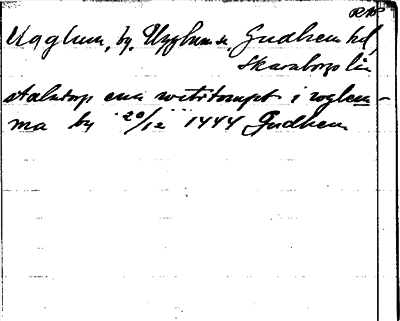 RAP
Uaglum, by, Ugglums sn, Gudhems hd,
Skaraborgs län
stalatorp ena wetitompt i voglem-
ma by 20/12 1444 Gudhem